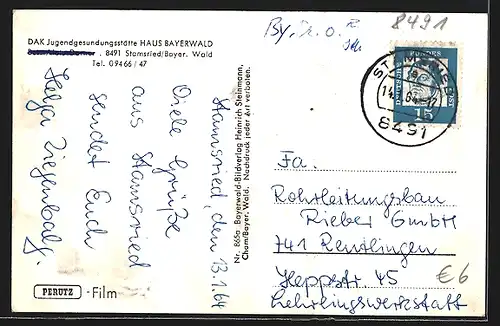 By. Z. o. R
8491
DAK Jugendgesundungsstätte HAUS BAYERWALD
8491 Stamsried/Bayer. Wald
Tel. 09466/47
Stamsried, den 13.1.64
Viele Grüße
aus Stamsried
sendet Euch
Helga Ziegenbalg.
Nr. 865a Bayerwald-Bildverlag Heinrich Steinmann,
Cham/Bayer. Wald. Nachdruck jeder Art verboten.
PERUTZ - Film
DEUTSCHE BUNDESPOST
15
8491
Fa.
Rohrleitungsbau
Rieber GmbH
741 Reutlingen
Heppstr. 45
Lehrlingswerkstatt
€6